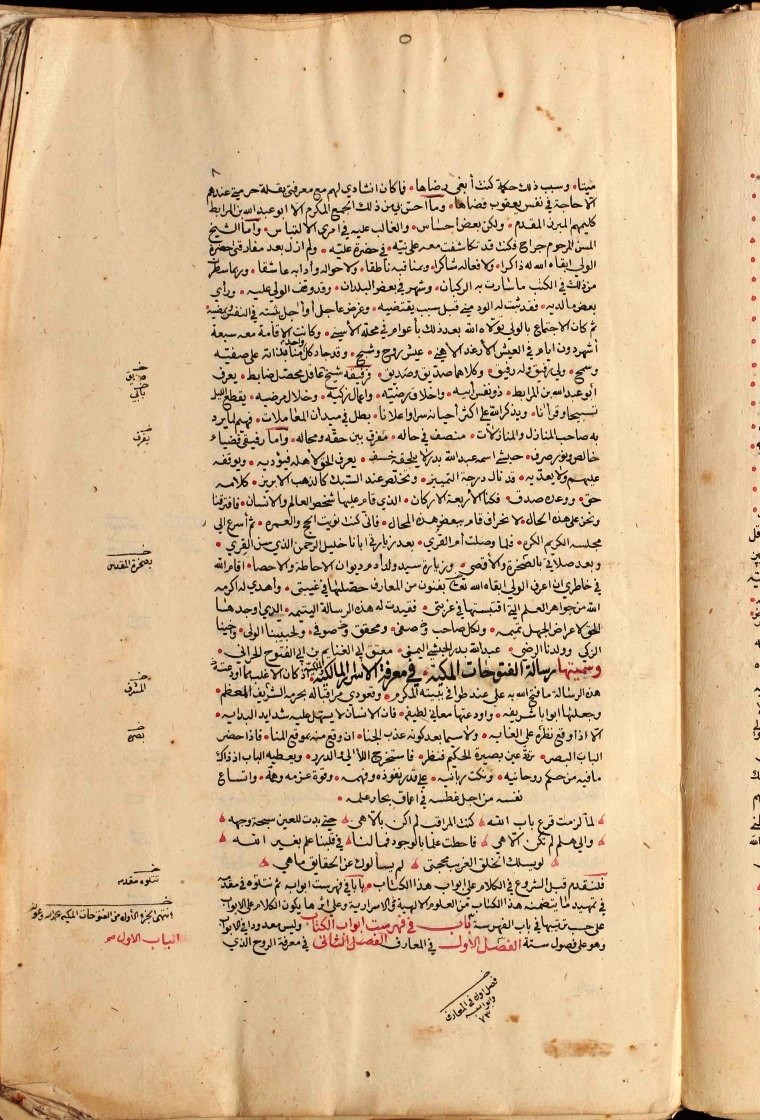 ميتا وسبب ذلك حكمة كنت أبغي رضاها فما كان انشادي لهم مع معرفتي بقلة حرمتي عندهم
الا حاجة في نفس يعقوب قضاها وما احس بي من ذلك الجمع المكرم الا ابو عبد الله بن المرابط
كليمهم المبرز المقدم ولكن بعض احساس والغالب عليه في امري الالتباس واما الشيخ
المسن المرحوم جراح فكنت قد تكاشفت معه على نية في حضرة علية ولم ازل بعد مفارقتي حضرة
الولي ابقاه الله له ذاكرا ولافعاله شاكرا وبمناقبه ناطقا ولاحواله وآدابه عاشقا وربما سطرت
من ذلك في الكتب ما سارت به الركبان وشهر في بعض البلدان وقد وقف الولي عليه ورأى
بعض ما لديه فقد ثبت له الود مني قبل سبب يقتضيه وغرض عاجل أو آجل يثبته في النفس ويمضيه
ثم كان الاجتماع بالولي تولاه الله بعد ذلك بأعوام في محله الأسنى وكانت الاقامة معه تسعة
أشهر دون ايام في العيش الأرغد الأهنى عيش روح وشبح وقد جاد كل واحد منا بذاته على صفيه
وسمح ولي رفيق وله رفيق وكلاهما صديق وصديق فرفيقه شيخ عاقل محصل ضابط يعرف
بأبي عبد الله بن المرابط ذو نفس أبية واخلاق رضية واعمال زكية وخلال مرضية يقطع الليل
تسبيحا وقرآنا ويذكر الله على اكثر أحيانه سرا واعلانا بطل في ميدان المعاملات فهم لما يرد
به صاحب المنازل والمنازلات منصف في حاله مفرق بين حقه ومحاله وأما رفيقي فضياء
خالص ونور صرف حبشي اسمه عبد الله بدر لا يلحقه خسف يعرف الحق لأهله فيؤديه ويوقفه
عليهم ولا يعديه قد نال درجة التمييز وتخلص عند السبك كالذهب الابريز كلامه
حق ووعده صدق فكنا الأربعة الأركان الذي قام عليها شخص العالم والانسان فافترقنا
ونحن على هذه الحال لانحراف قام ببعض هذه المحال فاني كنت نويت الحج والعمرة ثم أسرع الى
مجلسه الكريم الكرة فلما وصلت أم القرى بعد زيارتي أبانا خليل الرحمن الذي سن القرى
وبعد صلاتي بالصخرة والأقصى وزيارة سيد ولد آدم ديوان الاحاطة والاحصا اقام الله
في خاطري ان اعرف الولي ابقاه الله تعالى بفنون من المعارف حصلتها في غيبتي واهدي له اكرمه
الله من جواهر العلم التي اقتبستها في غربتي فقيدت له هذه الرسالة اليتيمة التي اوجدها
الحق لاعراض الجهل تميمة ولكل صاحب صفي ومحقق صوفي ولحبيبنا الولي واخينا
الزكي وولدنا الرضي عبد الله بدر الحبشي اليمني معتق أبي الغنايم بن أبي الفتوح الحراني
وسميتها رسالة الفتوحات المكية في معرفة الأسرار المالكية والملكية اذ كان الأغلب فيما أودعت
هذه الرسالة ما فتح الله به علي عند طوافي ببيته المكرم وقعودي مراقبا له بحرمه الشريف المعظم
وجعلتها ابوابا شريفة وأودعتها معاني لطيفة فان الانسان لا يسهل عليه شدايد البداية
الا اذا وقع نظره على الغاية ولاسيما بعد كونه عذب الجنا ان وقع منه بموقع المنا فاذا حضر
الباب البصر ردد عين بصيرة الحكيم فنظر فاستخرج اللآلي والدرر ويعطيه الباب اذ ذاك
ما فيه من حكم روحانية ونكت ربانية على قدر نفوذه وفهمه وقوة عزمه وهمه واتساع
نفسه من أجل غطسه في أعماق بحار علمه
لما لزمت قرع باب الله كنت المراقب لم اكن باللاهي حتى بدت للعين سبحة وجهه
والى هلم لم تكن الا هي فاحطت علما بالوجود فما لنا في قلبنا علم بغير الله
لو يسلك الخلق الغريب محجتي لم يسألوك عن الحقايق ما هي
فلنقدم قبل الشروع في الكلام على ابواب هذا الكتاب بابا في فهرست ابوابه ثم نتلوه في مقدمة
في تمهيد ما يتضمنه هذا الكتاب من العلوم الالهية الاسرارية وعلى اثرها يكون الكلام على الابواب
على حسب ترتيبها في باب الفهرسة باب في فهرست ابواب الكتاب وليس معدودا في الابواب
وهو على فصول ستة الفصل الأول في المعارف الفصل الثاني في معرفة الروح الذي
يعرف
بصخرة المقدس
نتلوه مقدمه
انتهى الجزء الأول من الفتوحات المكية
الباب الاول
فصل اول في المعارف
وابوابه
٧٣